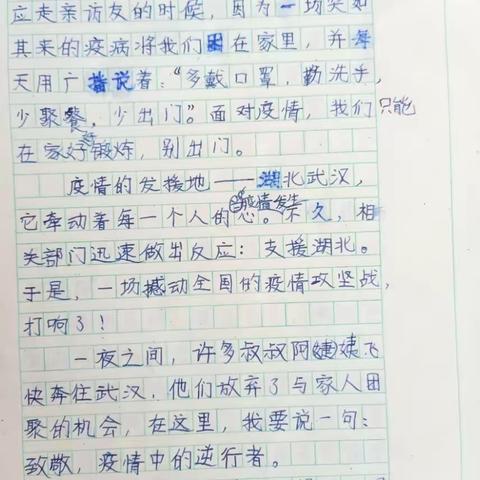 应走亲访友的时候，因为一场突如
其来的疫病将我们困在家里，并每
天用广播说着：“多戴口罩，勤洗手，
少聚餐，少出门”。面对疫情，我们只能
在家好好锻炼，别出门。
疫情的发援地——湖北武汉，
它牵动着每一个人的心。疫情发生不久，相
关部门迅速做出反应：支援湖北。
于是，一场撼动全国的疫情攻坚战，
打响了！
一夜之间，许多叔叔阿姨飞
快奔住武汉，他们放弃了与家人团
聚的机会，在这里，我要说一句：
致敬，疫情中的逆行者。